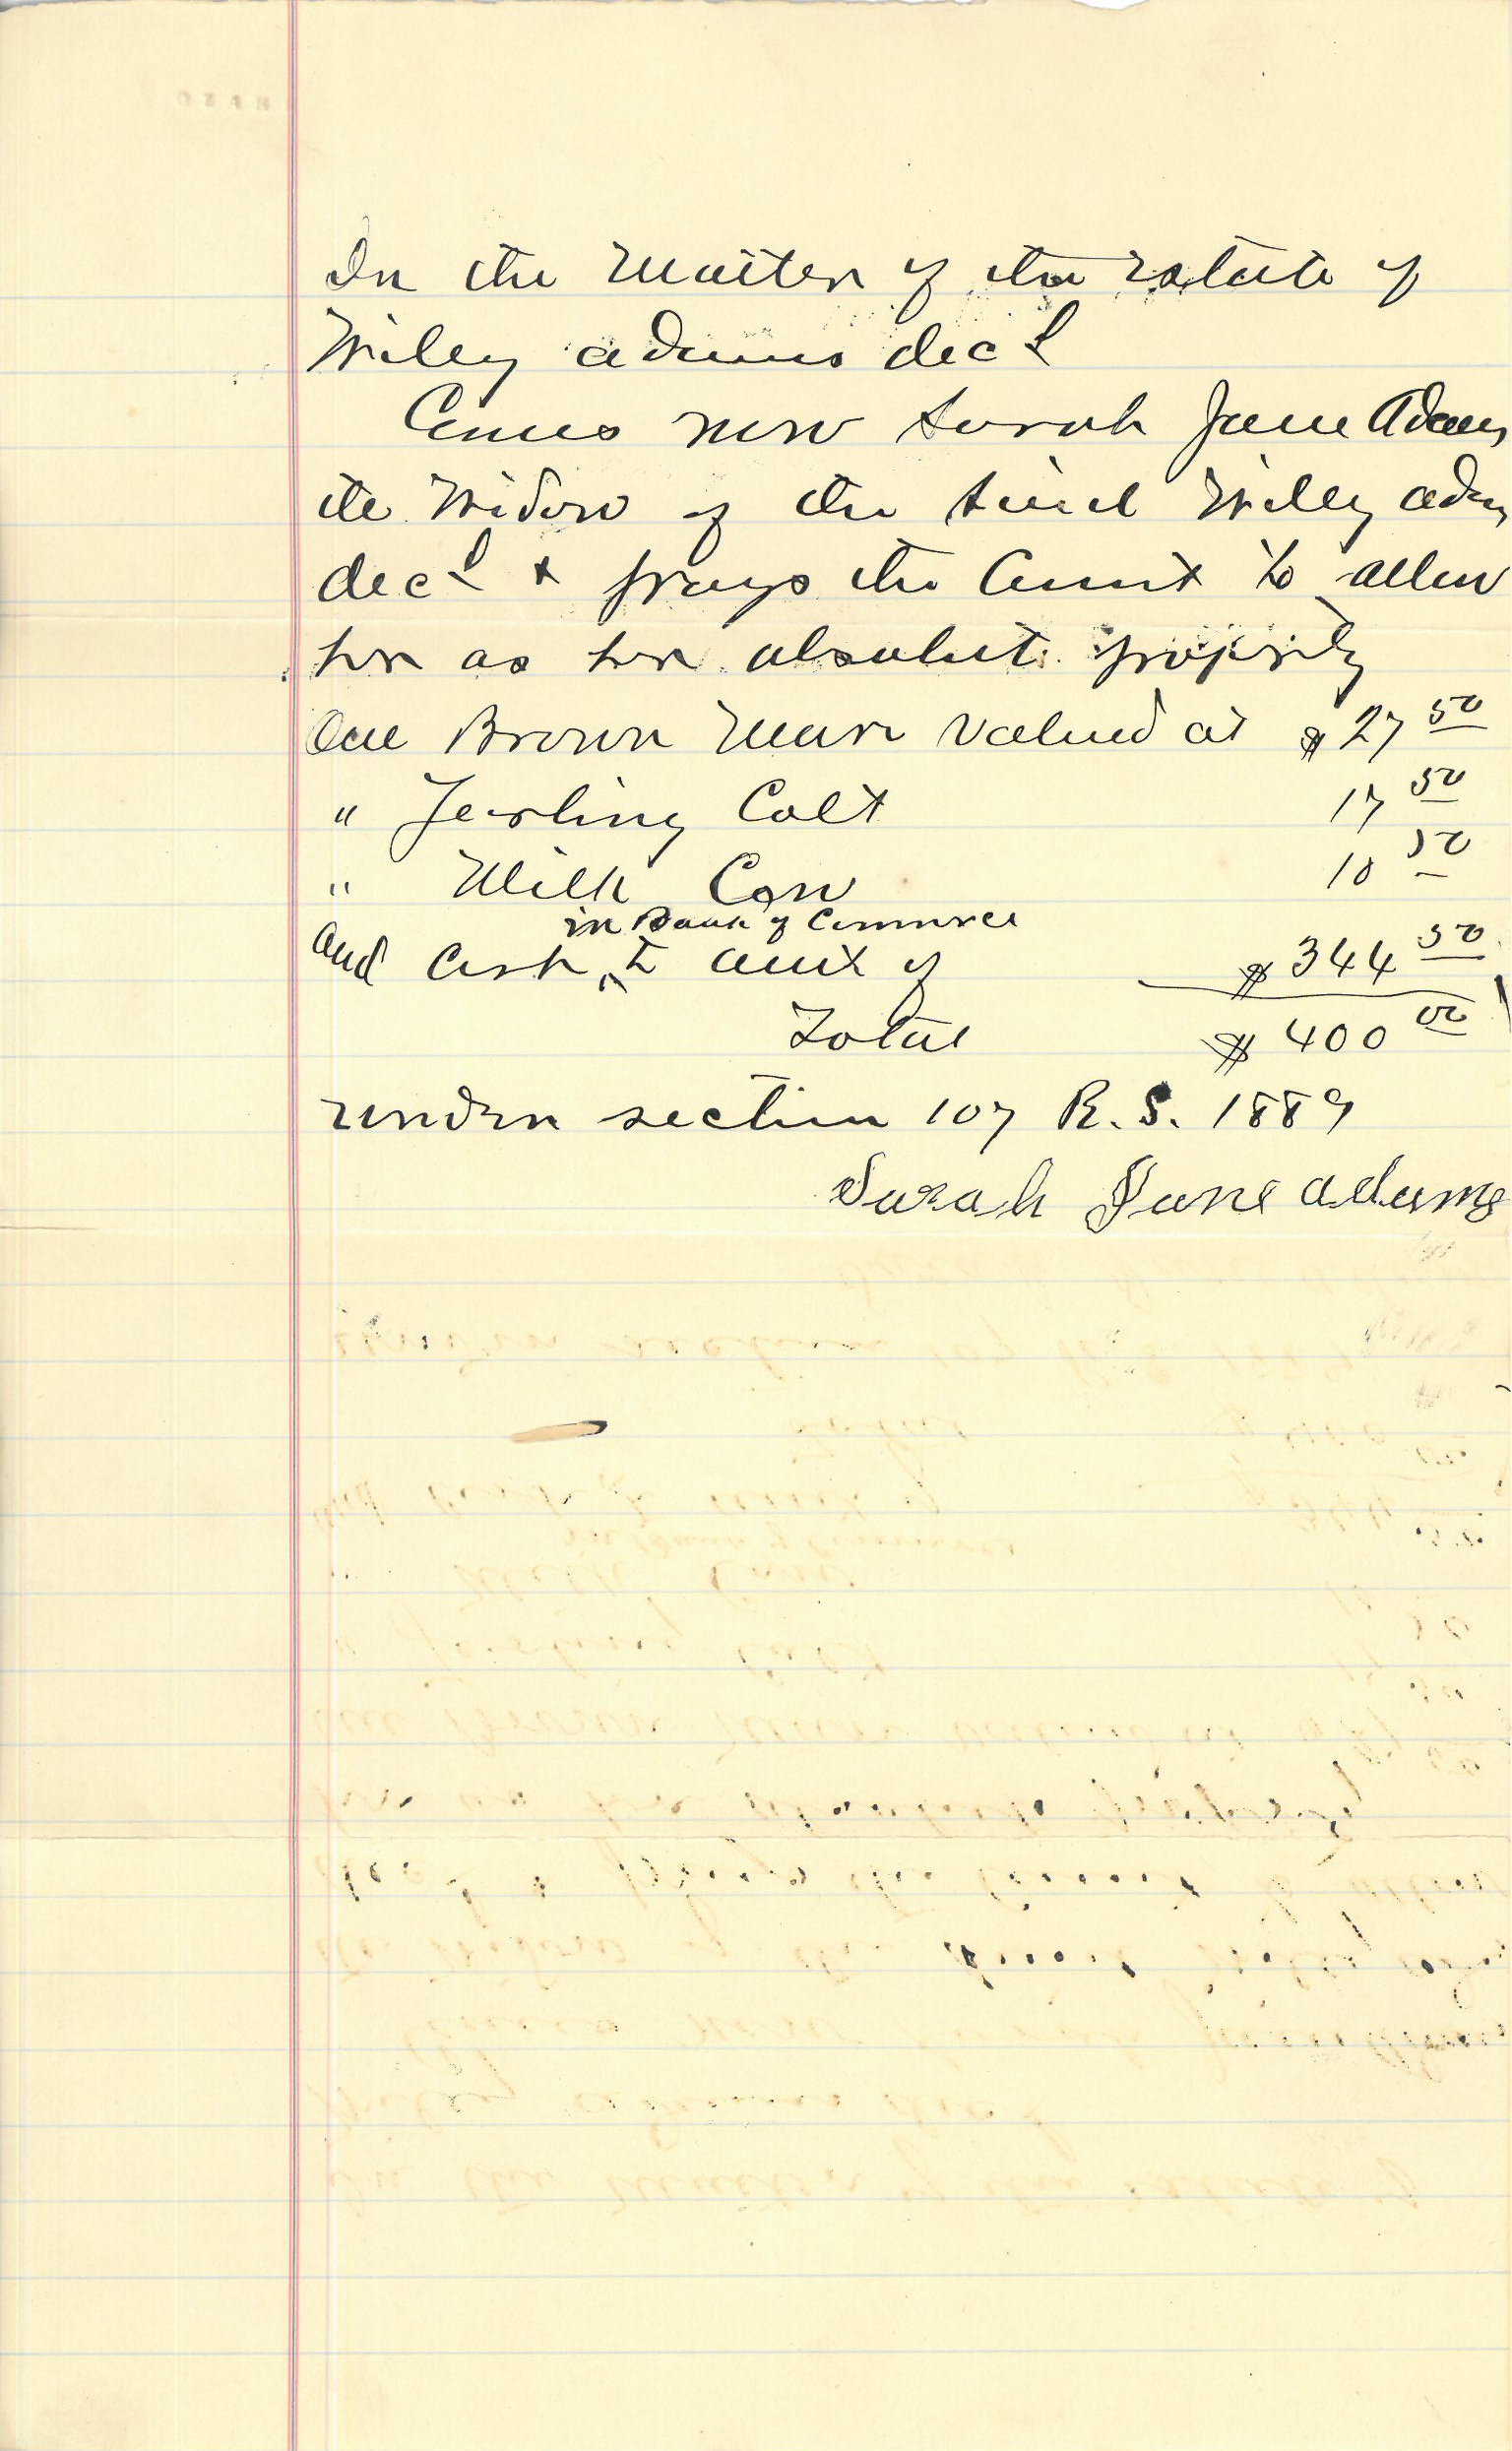 In the Matter of the estate of
Wiley Adams decd
Comes now Sarah Jane Adams
the Widow of the said Wiley Adms
decd & prays the Court to allow
her as her absolute property
One Brown Mare valued at $ 27 50
" Yearling Colt 17 50
" Milk Cow 10 50
in Bank of Commerce
and Cash ^ to amt of $ 344 50
Total $ 400 00
under section 107 R.S. 1889
Sarah Jane Adams